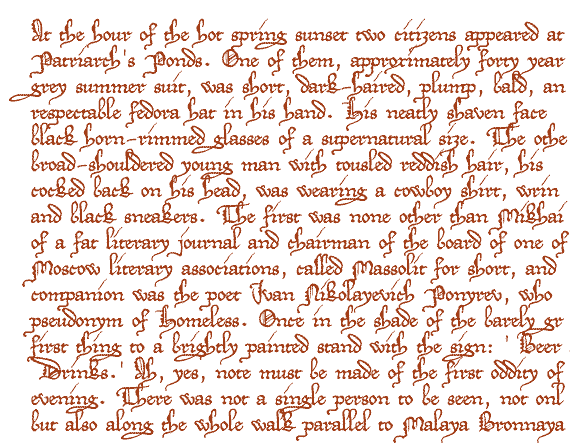 At the hour of the hot spring sunset two citizens appeared at
Patriarch's Ponds. One of them, approximately forty year
grey summer suit, was short, dark-haired, plump, bald, an
respectable fedora hat in his hand. His neatly shaven face
black horn-rimmed glasses of a supernatural size. The othe
broad-shouldered young man with tousled reddish hair, his
cocked back on his head, was wearing a cowboy shirt, wrin
and black sneakers. The first was none other than Mikhai
of a fat literary journal and chairman of the board of one of
Moscow literary associations, called Massolit for short, and
companion was the poet Ivan Nikolayevich Ponyrev, who
pseudonym of Homeless. Once in the shade of the barely gr
first thing to a brightly painted stand with the sign: ' Beer
Drinks.' Ah, yes, note must be made of the first oddity of
evening. There was not a single person to be seen, not onl
but also along the whole walk parallel to Malaya Bronnaya